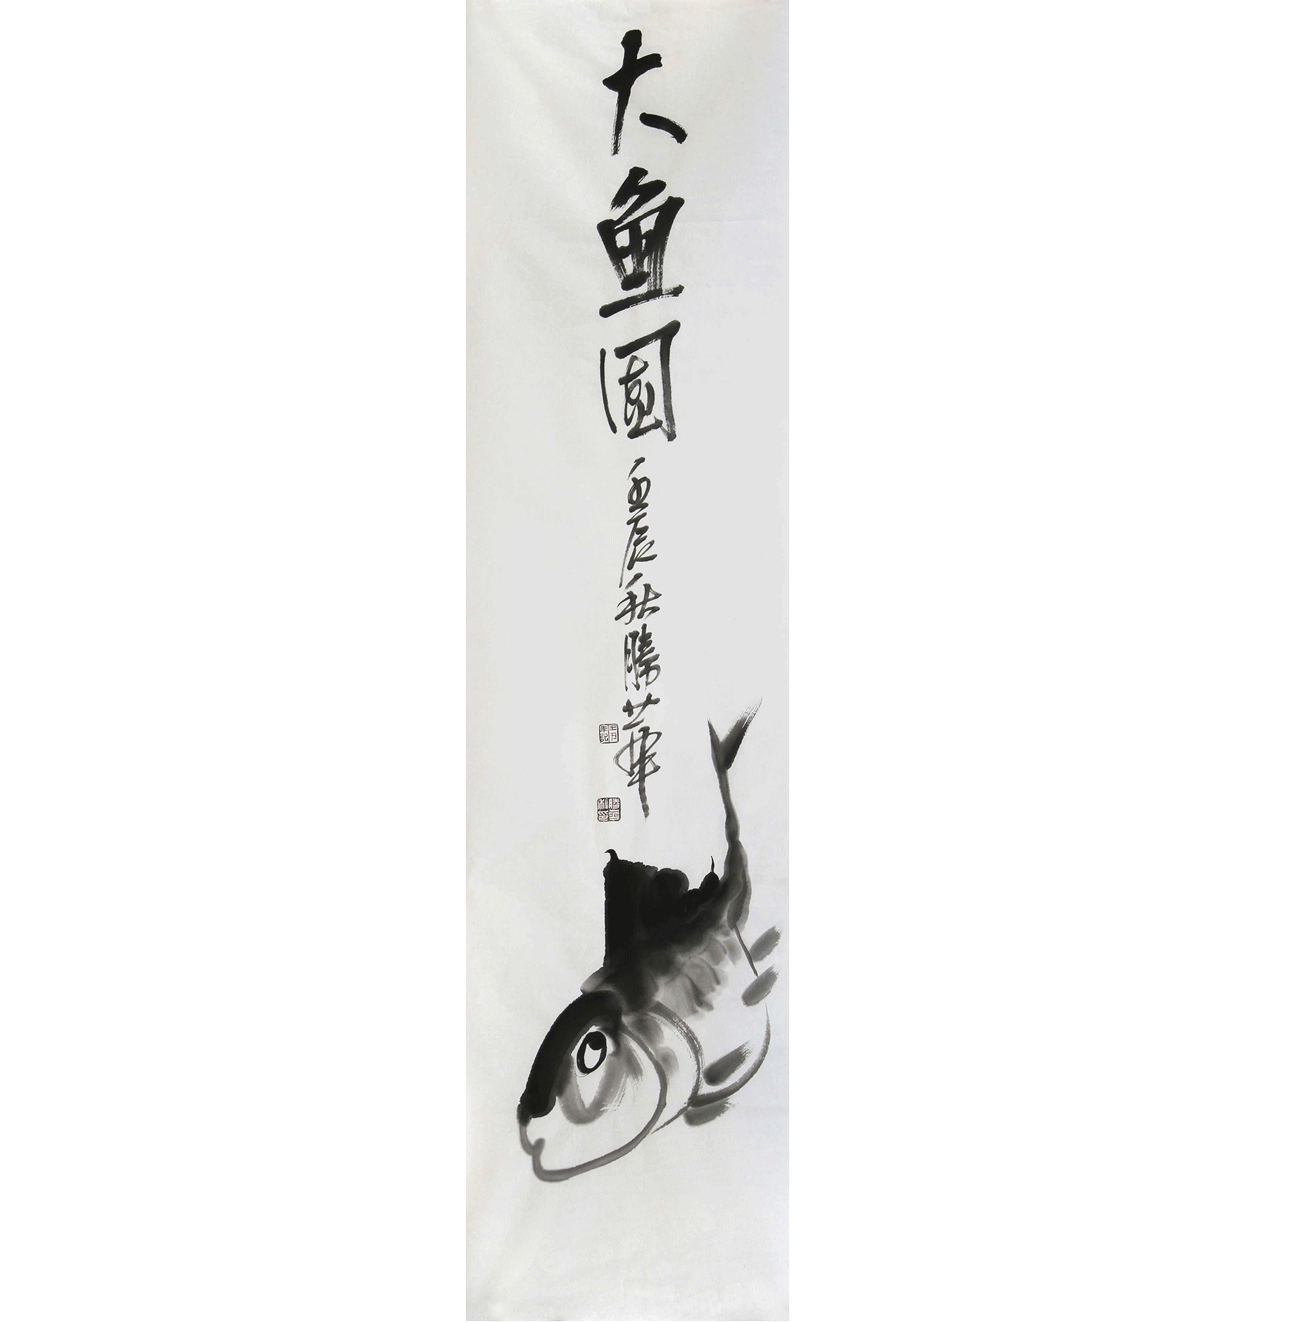 大鱼圖壬辰秋勝華